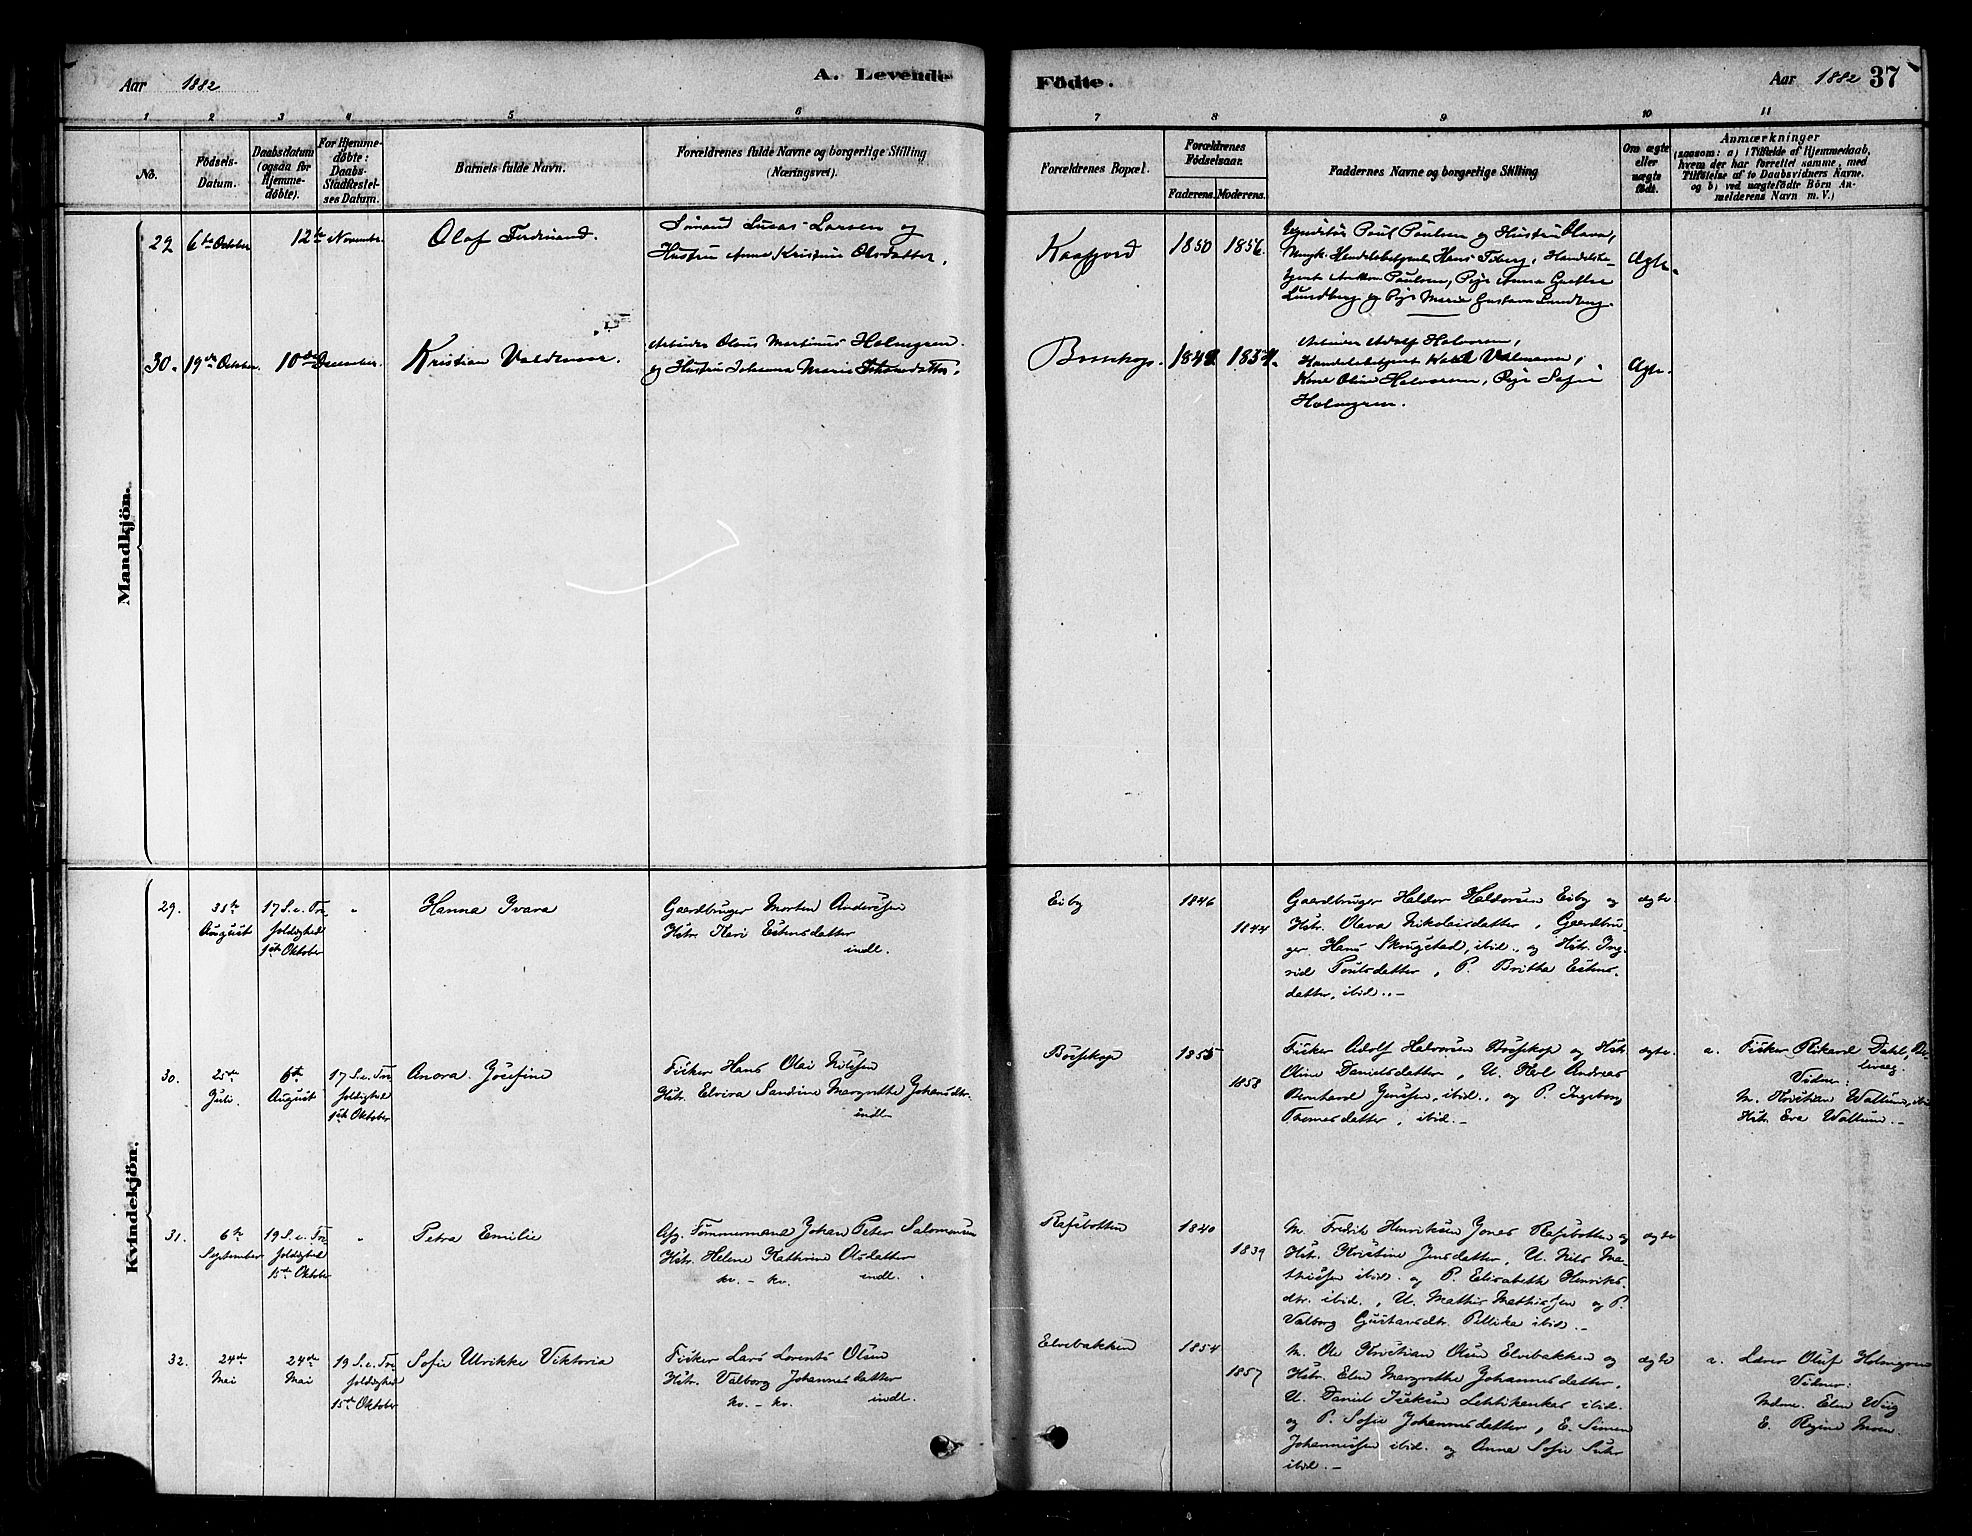 Aar 1882
A. Levende
Födte.
Aar 1882 37
1 2 3 4 5 6 7 8 9 10 11
No.
Födsels-
Datum.
Daabsdatum
(ogsaa for
Hjemme-
døbte).
For Hjemme-
døbte:
Daabs-
Stadfæstel-
ses Datum.
Barnets fulde Navn.
Forældrenes fulde Navne og borgerlige Stilling
(Næringsvei).
Forældrenes Bopæl.
Forældrenes
Födselsaar.
Faderens. Moderens.
Faddernes Navne og borgerlige Stilling
Om ægte
eller
uægte
födt.
Anmærkninger
(saasom: a) i Tilfælde af Hjemmedaab,
hvem der har forrettet samme, med
Tilföielse af to Daabsvidners Navne.
og b) ved uægtefödte Börn An-
melderens Navn m. V.)
Mandkjön.
29 6te October 12te November
Olaf Ferdinand.
Lucas Larsen og
Hustru Anna Kristine Olsdatter.
Kaafjord
1850 1856.
Poul Poulsen og Hustru Olava,
Hans
Poulsen, Pige Anna
Lundberg og Pige Marie Gustava Lundberg.
Ægte.
30. 19de October. 10de December.
Kristian Valdemar.
Arbeider Olaus Martinus Holmgren
og Hustru Johanna Marie
Bosekop.
Arbeider Adolf Halvorsen,
Kone Oline Halvorsen, Pige Sofie
Holmgren.
Ægte.
Kvindekjön.
29.
31te
August
17 S. e. Tre
foldighed
1ste Oktober
"
Hanna Ivara
Gaardbruger Morten Anderssen
Hstr. Kari Estensdatter
indl.
Eiby
1846
1844
Gaardbruger Haldor Haldorsen Eiby og
Hstr. Olava Nikolaisdatter, Gaardbru-
ger Hans Skrugstad, ibid., og Hstr. Ing-
rid Poulsdatter, P. Britha Estens-
datter, ibid..-
ægte
30.
25de
Juli.
6te
August
17 S. e. Tre
foldighed
1ste Oktober
Anora Josefine
Fisker Hans Olai Nilssen
Hstr. Elvira Sandine Margrethe Johansdtr.
indl.
Bossekop
1855
1858
Fisker Adolf Halvorsen Bossekop og Hstr.
Oline Danielsdatter, U. Karl Andreas
Bernhard Jenssen, ibid., og P. Ingeborg
Thomasdatter, ibid.-
ægte.
a. Fisker Rikard Dahl,
Vidner:
M. Kristian Wallum, ibid
Hstr. Eva Wallum.-
31.
6te
September
19 S. e. Tre
foldighed
15de Oktober
"
Petra Emilie
Afg. Tømmermand Johan Peter Salomonsen
Hstr. Helene Kathrine Olsdatter
kv. - kv. indl.
Rafsbotten
1840
1839
M. Fredrik Henriksen Jonas Rafsbotten og
Hstr. Kristine Jensdatter, U. Nils Ma-
thissen ibid. og P. Elisabeth Henriks-
dtr. ibid., U. Mathis Mathissen og P.
Valborg Gustavsdtr. Pellika ibid.-
ægte
32.
24de
Mai
24de
Mai
19 S. e. Tre
foldighed
15de Oktober
Sofie Ulrikke Viktoria
Fisker Lars Lorents Olsen
Hstr. Valborg Johannesdatter
kv. - kv. indl.
Elvebakken
1854
1857
M. Ole Kristian Olsen Elvebakken og
Hstr. Elen Margrethe Johannesdatter,
U. Daniel Isaksen ibid
og P. Sofie Johannesdatter, E. Simon
Johannessen ibid. og Anna Sofie
ibid.-
ægte
a. Lærer Oluf Holmgren
Vidner:
Mdme. Elen Wiig
E. Regine